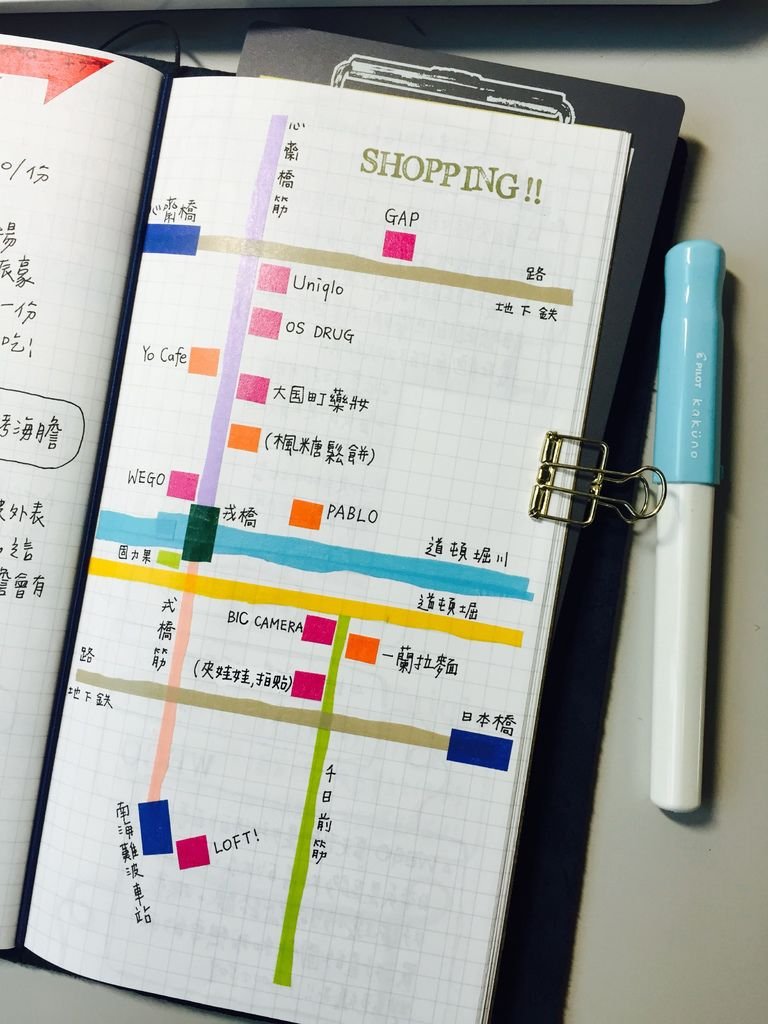 0/份
一份
吃!
海膽
外表
會有
SHOPPING!!
心齋橋筋
心齋橋
GAP
路
地下鉄
Uniqlo
OS DRUG
Yo Cafe
大国町藥妝
(楓糖鬆餅)
WEGO
戎橋
PABLO
道頓堀川
固力果
道頓堀
戎橋筋
BIC CAMERA
一蘭拉麵
(夾娃娃,拍貼)
路
地下鉄
日本橋
千日前筋
南海難波車站
LOFT!
PILOT kaküno